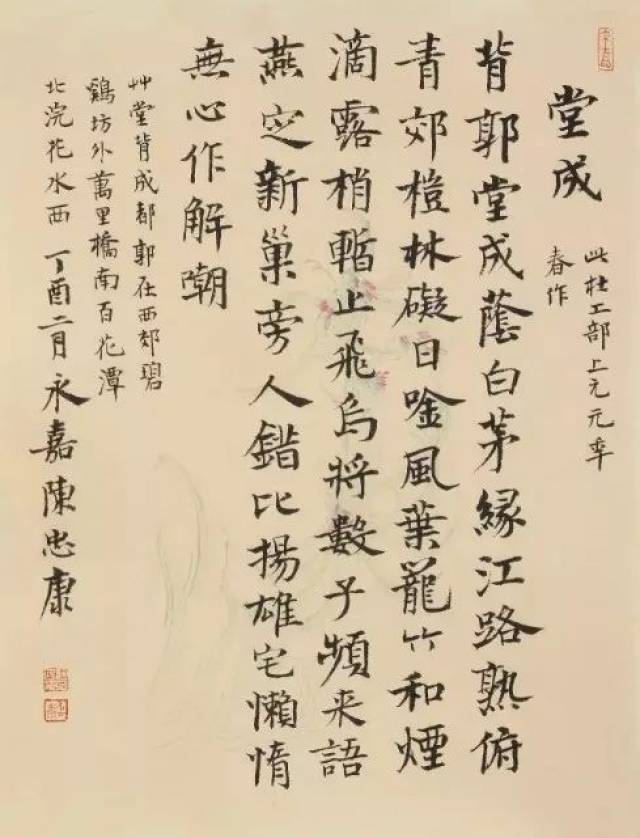 堂成
此杜工部上元元秊
春作
背郭堂成蔭白茅緣江路熟俯
青郊榿林礙日唫風葉籠竹和煙
滴露梢暫止飛烏將數子頻来語
燕㝎新巢旁人錯比揚雄宅懶惰
無心作解嘲
艸堂背成都郭在西郊碧
鷄坊外萬里橋南百花潭
北浣花水西丁酉二月永嘉陳忠康